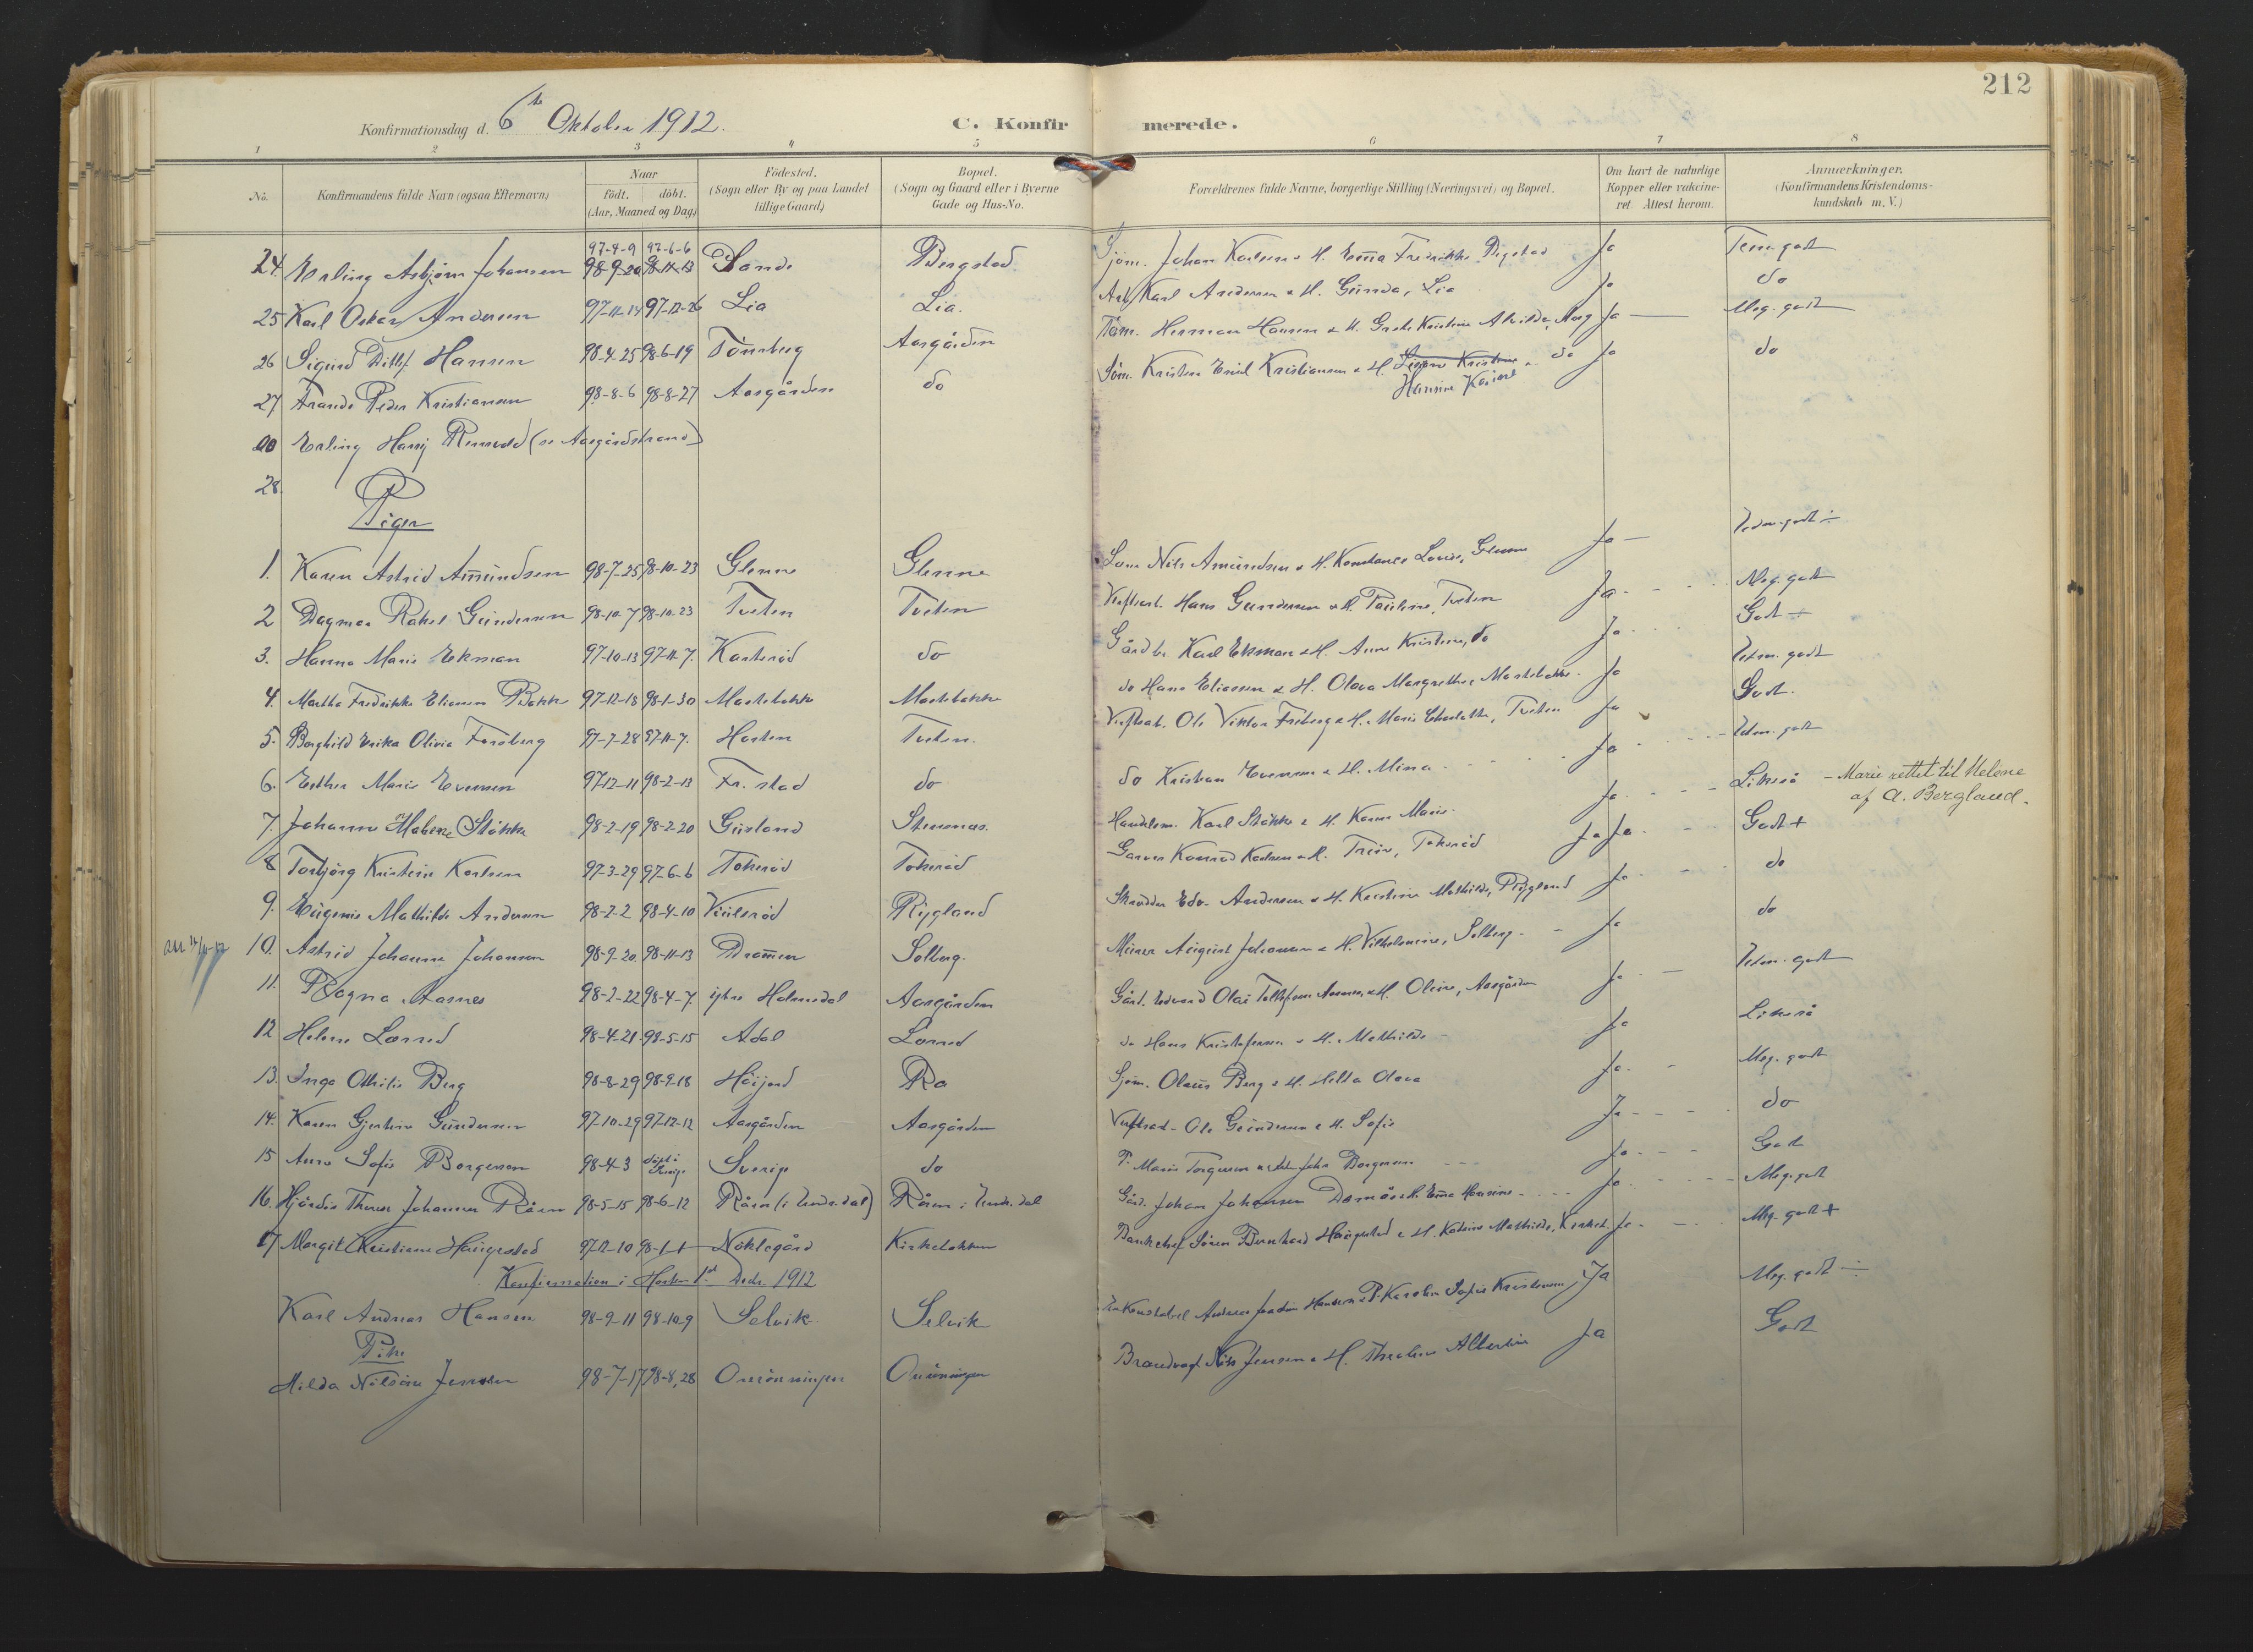 212
Konfirmationsdag d. 6te Oktober 1912.
C. Konfirmerede.
1 2 3 4 5 6 7 8
No. Konfirmandens fulde Navn (ogsaa Efternavn) Naar født. døbt. (Aar, Maaned og Dag) Fødested. (Sogn eller By og paa Landet tillige Gaard) Bopæl. (Sogn og Gaard eller i Byerne Gade og Hus-No. Forældrenes fulde Navne, borgerlige Stilling (Næringsvei) og Bopæl. Om havt de naturlige Kopper eller vaccineret. Attest herom. Anmærkninger. (Konfirmandens Kristendomskundskab m. V.)
97-4-9 97-6-6
24. Erling Asbjørn Johansen 98-9-20 98-11-13 Sande Bergsted Sjøm. Johan Karlsen & H. Emma Fredrikke Ja Tem. godt
25 Karl Oskar Andersen 97-11-14 97-12-26 Lia Lia. Arb. Karl Andersen & H. Gunda, Lia Ja do
26 Sigurd Ditlef Hansen 98-4-25 98-6-19 Tønsberg Aasgården Tøm. Herman Hansen & H. Grete Kristine Alvilde, Aasg Ja Meg. godt
27 Frants Peder Kristiansen 98-8-6 98-8-27 Aasgården do Tøm. Kristen Emil Kristiansen & H. Hansine Karine do Ja do
Erling Harry (se Aasgårdstrand)
28.
Piger
1. Karen Astrid Amundsen 98-7-25 98-10-23 Glenne Glenne Nils Amundsen & H. Konstance Lovise, Glenne Ja Udm. godt ÷
2 Dagmar Rakel Gundersen 98-10-7 98-10-23 Tveten Tveten Verftsarb. Hans Gundersen & H. Pauline, Tveten Ja Meg. godt
3. Hanna Marie Ekman 97-10-13 97-11-7. do Gårdbr. Karl Ekman & H. Anne Kristine, do Ja Godt +
4. Martha Fredrikke Eliassen Bakke 97-12-18 98-1-30 Mastebakke Mastebakke do Hans Eliassen & H. Olava Margrethe, Mastebakke Ja Udm. godt
5. Borghild Erika Olivia Frøberg 97-7-28 97-11-7. Horten Tveten. Verftsarb. Ole Viktor Frøberg & H. Marie Charlotte, Tveten Ja Godt.
6. Esther Marie Evensen 97-12-11 98-2-13 Fr. stad do do Kristian Evensen & H. Mina Ja Udm. godt
7. Johanne Helene Støkke 98-2-19 98-2-20 Steinsnes. Handelsm. Karl Støkke & H. Karen Marie. Ja Likeså – Marie rettet til Helene
af A. Bergland.
8 Torbjørg Kristine Karlsen 97-3-29 97-6-6 Tokerød Tokerød Garver Konrad Karlsen & H. Trine, Tokerød Ja Ja Godt +
9. Eugenie Mathilde Andersen 98-2-2 98-4-10 Rygland Skrædder Edv. Andersen & H. Kristine Mathilde, Rygland Ja do
10. Astrid Johanne Johansen 98-9-20 98-11-13 Drammen Solberg. Murer August Johansen & H. Vilhelmine, Solberg Ja do
11. Ragna Aasnes 98-2-22 98-4-7. ytre Holmedal Aasgården Gård. Edvard Olai Tollefsen Aasnes, & H. Oline, Aasgården Ja Udm. godt
12 Helene Lørred 98-4-21 98-5-15 Adal Lørred do Hans Kristofersen & H. Mathilde Ja Likeså
13. Inga Othilie Berg 98-8-29 98-9-18 Høijord Ra Sjøm. Olaus Berg & H. Hilda Olava Ja Meg. godt
14. Karen Gjertine Gundersen 97-10-29 97-12-12 Aasgården Aasgården Verftsarb. Ole Gundersen & H. Sofie Ja do
15 Anne Sofie Borgersen 98-4-3 døpt i Sverige Sverige do P. Marie Torgersen & John Borgersen Ja Godt
16. Hjørdis Therese Johansen Råen 98-5-15 98-6-12 Råen (i Undr. dal) Råen i Undr. dal Gårdbr. Johan Johansen & H. Emma Hansine Ja Meg. godt
17 Margit Kristiane Haugestad 97-12-10 98-1-1 Nøklegård Kirkebakken Bankchef Søren Bernhard Haugestad & H. Katrine Mathilde, Kirkeb. Ja Meg. godt +
Konfirmation i Horten 1st Decbr. 1912
Karl Andreas Hansen 98-9-11 98-10-9 Selvik Selvik Konstabel Andreas Joakim Hansen & P. Karoline Sofie Kristensen, Ja Meg. godt ÷
Pike
Hilda Nilsine Jensen 98-7-17 98-8-28 Brandvagt Nils Jensen & H. Thraline Albertine Ja Godt